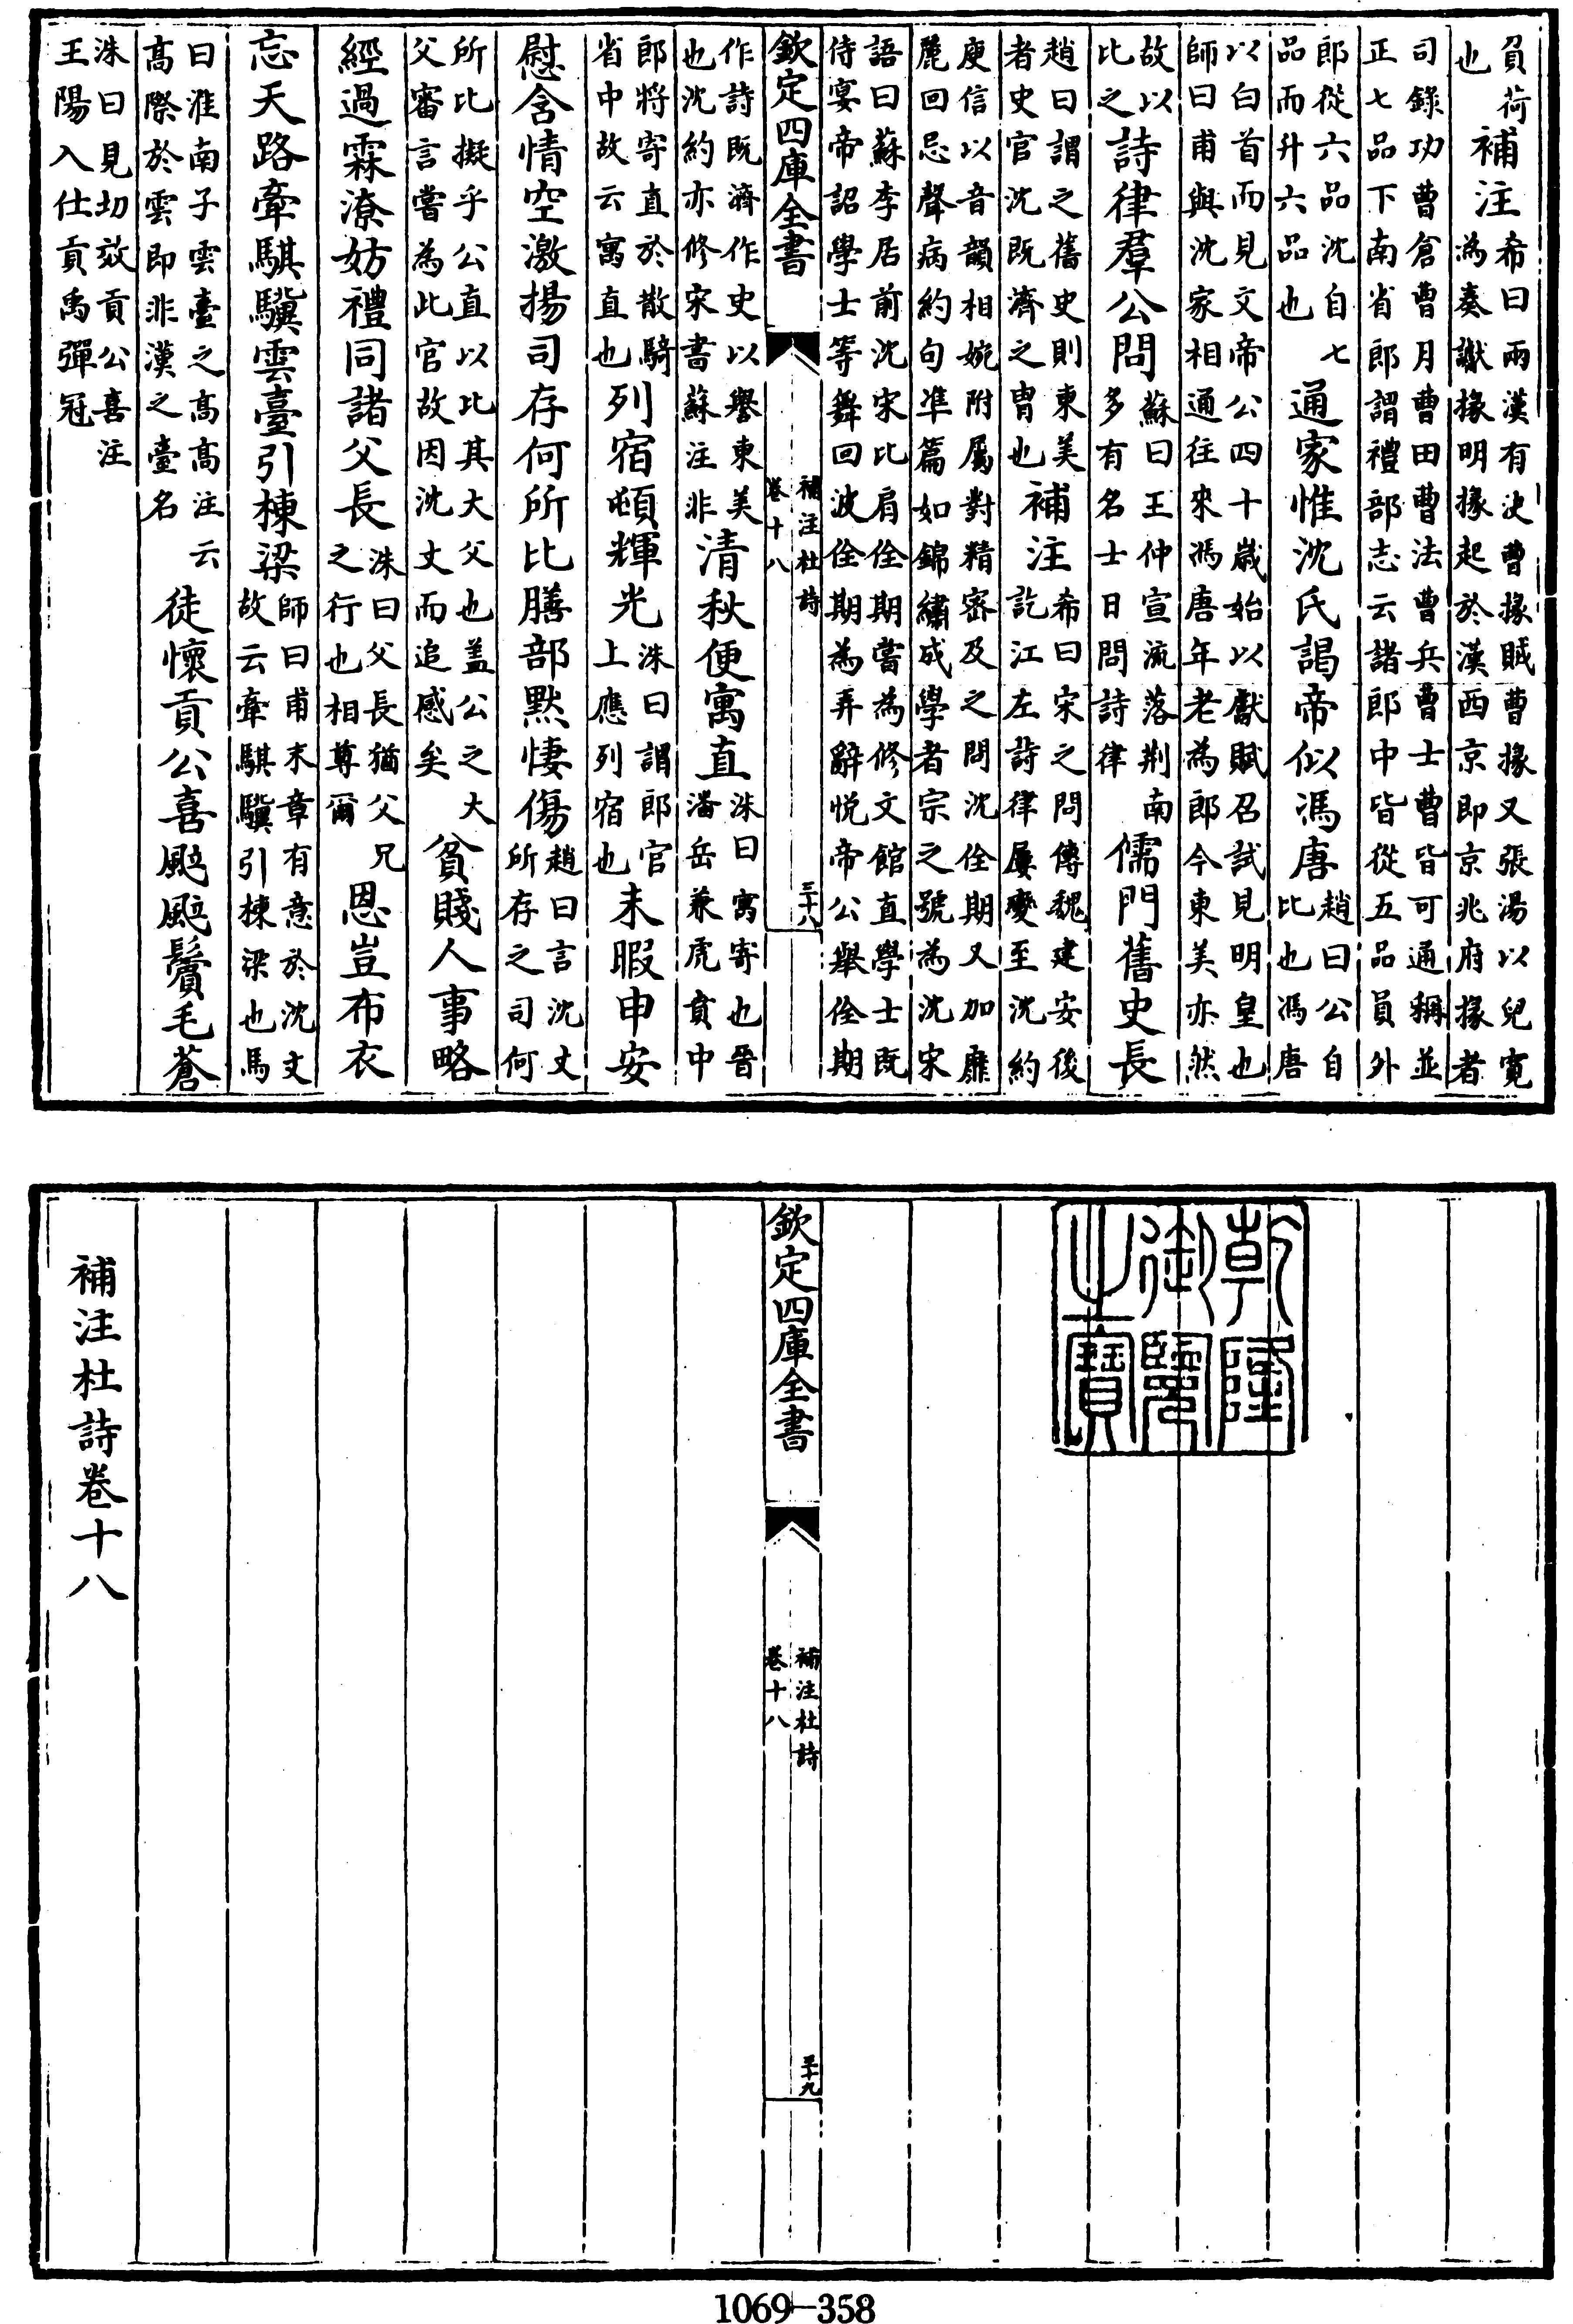 員荷
也
補注
希曰兩漢有決曹掾賊曹掾又張湯以兒寬
為奏讞掾明掾起於漢西京即京兆府掾者
司錄功曹倉曹月曹田曹法曹兵曹士曹皆可通稱並
正七品下南省郎謂禮部志云諸郎中皆從五品員外
郎從六品沈自七
品而升六品也
通家惟沈氏謁帝似馮唐
趙曰公自
比也馮唐
以白首而見文帝公四十歲始以獻賦召試見明皇也
師曰甫與沈家相通往來馮唐年老為郎今東美亦然
故以
比之
詩律羣公問
蘇曰王仲宣流落荆南
多有名士日問詩律
儒門舊史長
趙曰謂之舊史則東美
者史官沈既濟之胄也
補注
希曰宋之問傳魏建安後
訖江左詩律屢變至沈約
庾信以音韻相婉附屬對精密及之問沈佺期又加靡
麗回忌聲病約句準篇如錦繡成學者宗之號為沈宋
語曰蘇李居前沈宋比肩佺期嘗為修文館直學士既
侍宴帝詔學士等舞回波佺期為弄辭悅帝公舉佺期
欽定四庫全書
補注杜詩
卷十八
三十八
作詩既濟作史以譽東美
也沈約亦修宋書蘇注非
清秋便寓直
洙曰寓寄也晉
潘岳兼虎賁中
郎將寄直於散騎
省中故云寓直也
列宿頓輝光
洙曰謂郎官
上應列宿也
未暇申安
慰含情空激揚司存何所比膳部默悽傷
趙曰言沈丈
所存之司何
所比擬乎公直以比其大父也盖公之大
父審言嘗為此官故因沈丈而追感矣
貧賤人事略
經過霖潦妨禮同諸父長
洙曰父長猶父兄
之行也相尊爾
恩豈布衣
忘天路牽騏驥雲臺引棟梁
師曰甫末章有意於沈丈
故云牽騏驥引棟梁也馬
曰淮南子雲臺之高高注云
高際於雲即非漢之臺名
徒懷貢公喜颯颯鬢毛蒼
洙曰見切效貢公喜注
王陽入仕貢禹彈冠
乾隆御覽之寶
欽定四庫全書
補注杜詩
卷十八
三十九
補注杜詩卷十八
1069-358